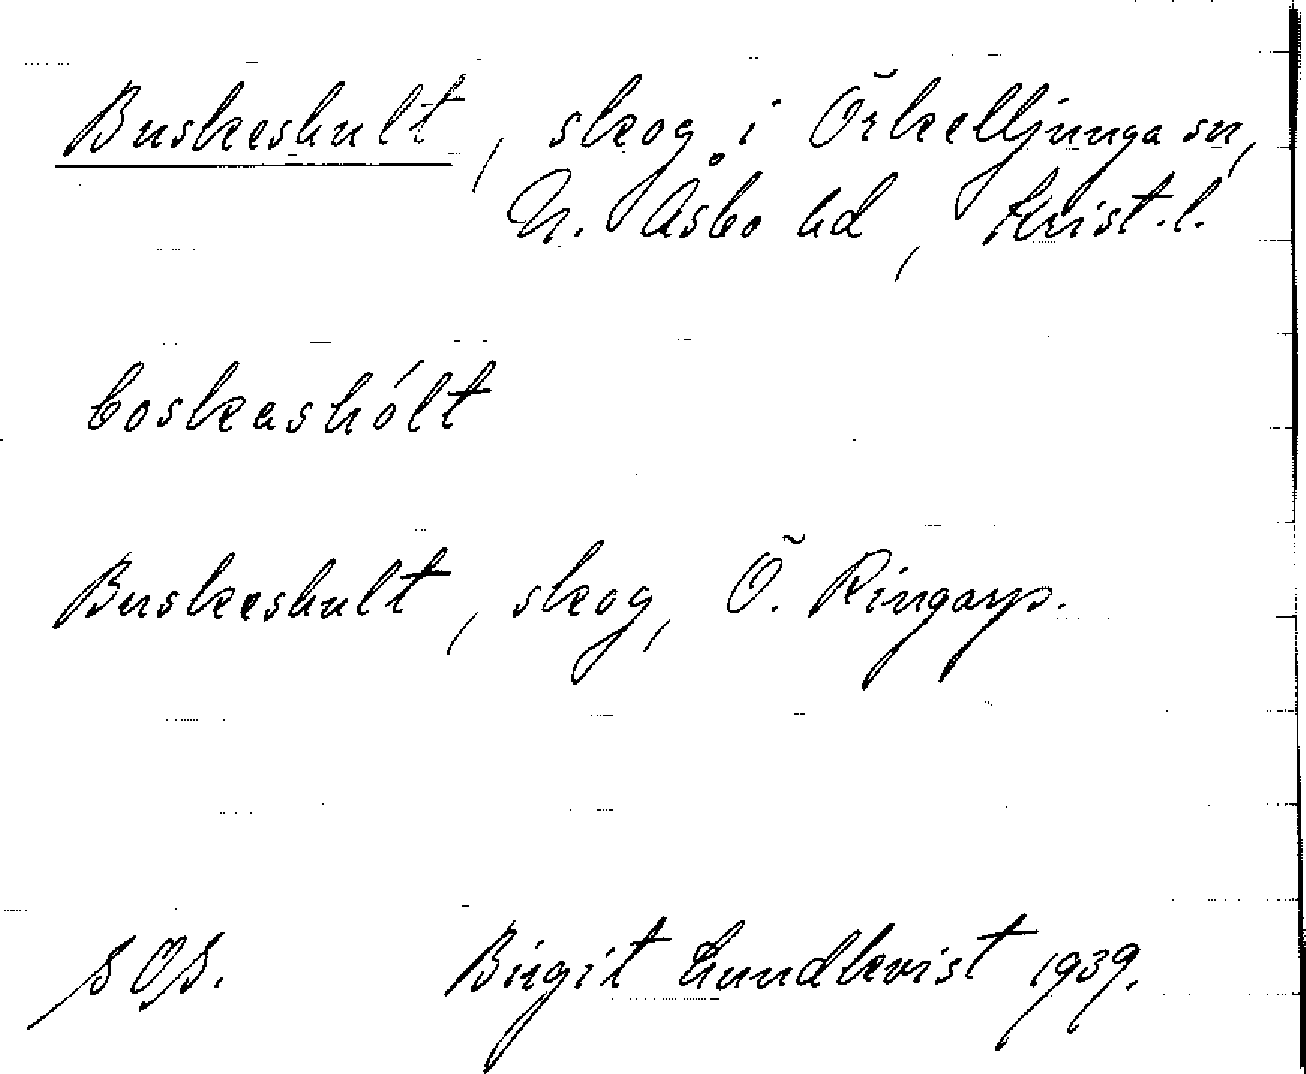 Buskeshult, skog i Örkelljunga sn,
N. Åsbo hd, Krist.l.
boskashólt
Buskeshult, skog, Ö. Ringarp.
SOS. Birgit Lundkvist 1939.